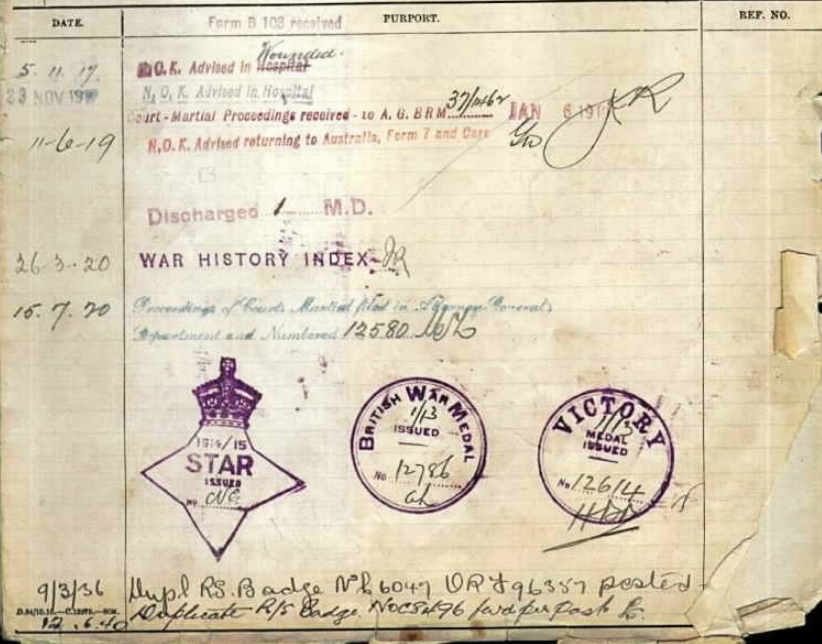 DATE. PURPORT. REF. NO.
Form B 103 received
Wounded.
5. 11. 17 N.O.K. Advised in Hospital
23 NOV 1917 N.O.K. Advised in Hospital
Court-Martial Proceedings received - to A.G. BRM 37/1462 JAN 6 191
11-6-19 N.O.K. Advised returning to Australia, Form 7 and Card
Discharged 1 M.D.
26-3-20 WAR HISTORY INDEX-
15.7.20 Proceedings of Courts Martial filed in Attorney Generals
Department and Numbered 12580
1914/15
STAR
ISSUED
No
BRITISH WAR MEDAL
1/13
ISSUED
No 12786
VICTORY
1/13
MEDAL
ISSUED
No 12614
9/3/36 Dupl RS. Badge No 6047 posted
12.6.40 Duplicate R/S Badge. No fwd per post